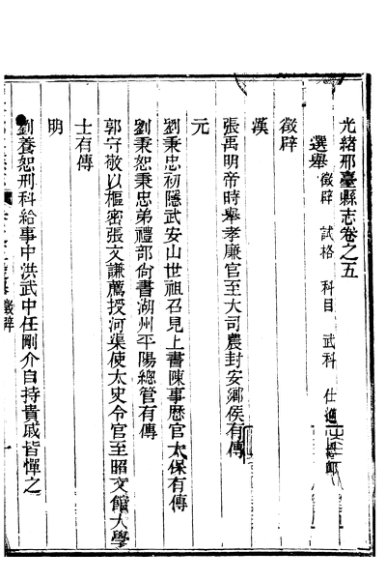 光緒邢臺縣志卷之五
選舉 徵辟 試格 科目 武科 仕進
徵辟
漢
張禹明帝時舉孝廉官至大司農封安鄉侯有傳
元
劉秉忠初隱武安山世祖召見上書陳事歷官太保有傳
劉秉恕秉忠弟禮部尚書湖州平陽總管有傳
郭守敬以樞密張文謙薦授河渠使太史令官至昭文館大學
士有傳
明
劉養恕刑科給事中洪武中任剛介自持貴戚皆憚之
徵辟
一